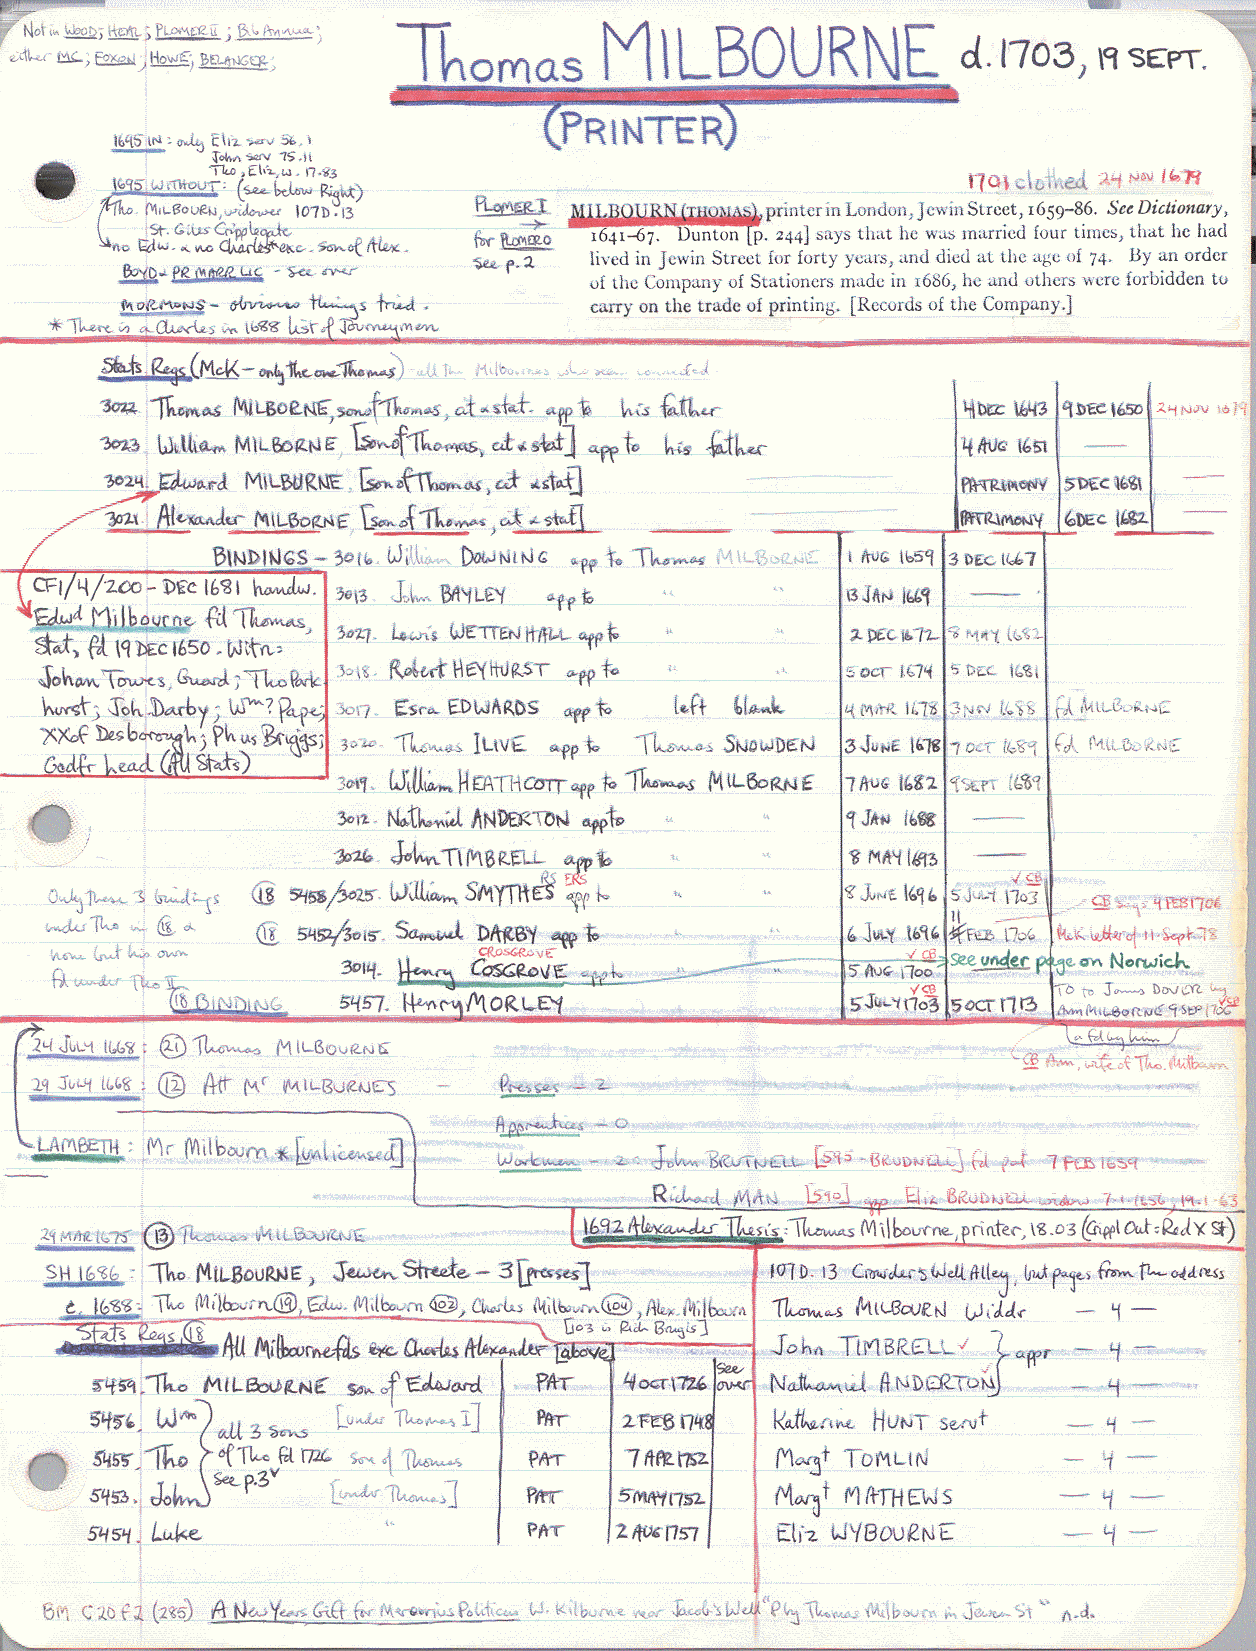 Not in WOOD; HEAL; PLOMER II; Bib Annua;
either MC; FOXON; HOWE; BELANGER;
Thomas MILBOURNE d. 1703, 19 SEPT.
(PRINTER)
1695 IN: only Eliz serv 56.1
John serv 75.11
Tho, Eliz, w. 17.83
1695 WITHOUT: (see below Right)
Tho. MILBOURN, widower 107D.13
St. Giles Cripplegate
no Edw. & no Charles* exc. son of Alex.
BOYD & PR MARR LIC - see over
MORMONS - obvious things tried.
* There is a Charles in 1688 list of Journeymen
PLOMER I
for PLOMER O
see p. 2
1701 clothed 24 NOV 1679
MILBOURN (THOMAS), printer in London, Jewin Street, 1659-86. See Dictionary,
1641-67. Dunton [p. 244] says that he was married four times, that he had
lived in Jewin Street for forty years, and died at the age of 74. By an order
of the Company of Stationers made in 1686, he and others were forbidden to
carry on the trade of printing. [Records of the Company.]
Stats Regs (McK - only the one Thomas) - all the Milbournes who seem connected
3022. Thomas MILBORNE, son of Thomas, cit & stat. app to his father 4 DEC 1643 9 DEC 1650 24 NOV 1679
3023. William MILBORNE [son of Thomas, cit & stat] app to his father 4 AUG 1651 —
3024. Edward MILBURNE, [son of Thomas, cit & stat] PATRIMONY 5 DEC 1681
3021. Alexander MILBORNE, [son of Thomas, cit & stat] PATRIMONY 6 DEC 1682
BINDINGS - 3016. William DOWNING app to Thomas MILBORNE 1 AUG 1659 3 DEC 1667
3013. John BAYLEY app to 13 JAN 1669 —
3027. Lewis WETTENHALL app to " " 2 DEC 1672 8 MAY 1682
3018. Robert HEYHURST app to " " 5 OCT 1674 5 DEC 1681
3017. Esra EDWARDS app to left blank 4 MAR 1678 3 NOV 1688 fd MILBORNE
3020. Thomas ILIVE app to Thomas SNOWDEN 3 JUNE 1678 7 OCT 1689 fd MILBORNE
3019. William HEATHCOTT app to Thomas MILBORNE 7 AUG 1682 9 SEPT 1689
3012. Nathaniel ANDERTON app to " " 9 JAN 1688 —
3026. John TIMBRELL app to " " 8 MAY 1693 —
CF1/4/200 - DEC 1681 handw.
Edwd Milbourne fd Thomas,
Stat, fd 19 DEC 1650. Witn:
Johan Towes, Guard; Tho Park
hurst; Joh Darby; Wm? Pape;
XX of Desborough; Ph us Briggs;
Godfr head (All Stats)
Only these 3 bindings
under Tho in (18) &
none but his own
fd under Tho II
(18) 5458/3025. William SMYTHES RS ERS app to " " 8 JUNE 1696 5 JULY 1703 ✓ CB
CB says 4 FEB 1706
(18) 5452/3015. Samuel DARBY app to 6 JULY 1696 FEB 1706 McK letter of 11 Sept 78
CROSGROVE
3014. Henry COSGROVE app to " " 5 AUG 1700 ✓ CB See under page on Norwich
(18) BINDING 5457. Henry MORLEY 5 JULY 1703 ✓ CB 5 OCT 1713
TO to James DOVER by
Ann MILBORNE 9 SEP 1706 ✓ CB
& fd by him
CB Ann, wife of Tho. Milbourn
24 JULY 1668: (21) Thomas MILBOURNE
29 JULY 1668: (12) Att Mr MILBURNES - Presses - 2
Apprentices - 0
LAMBETH: Mr Milbourn * [unlicensed]
Workmen - 2: John BRUTNELL [595 - BRUDNELL] fd pat 7 FEB 1659
Richard MAN [590] app Eliz BRUDNELL widow 7-1-1656, 19-1-63
29 MAR 1675 (13) Thomas MILBOURNE
1692 Alexander Thesis: Thomas Milbourne, printer, 18.03 (Crippl Out = Red X St)
SH 1686: Tho MILBOURNE, Jewen Streete - 3 [presses]
c. 1688: Tho Milbourn (19), Edw. Milbourn (102), Charles Milbourn (104), Alex. Milbourn
[103 is Rich Brugis]
Stats Regs (18) All Milbourne fds exc Charles Alexander [above]
5459. Tho MILBOURNE son of Edward PAT 4 OCT 1726 see over
5456. Wm [under Thomas I] PAT 2 FEB 1748
all 3 sons
5455. Tho of Tho fd 1726 son of Thomas PAT 7 APR 1752
see p. 3v
5453. John [under Thomas] PAT 5 MAY 1752
5454. Luke " PAT 2 AUG 1757
107D.13 Crowders Well Alley, but pages from the address
Thomas MILBOURN Widdr — 4 —
John TIMBRELL ✓ } appr — 4 —
Nathaniel ANDERTON ✓ — 4 —
Katherine HUNT servt — 4 —
Margt TOMLIN — 4 —
Margt MATHEWS — 4 —
Eliz WYBOURNE — 4 —
BM C 20 f 2 (285) A New Years Gift for Mercurius Politicus W. Kilburne near Jacob's Well "P by Thomas Milbourn in Jewen St" n.d.